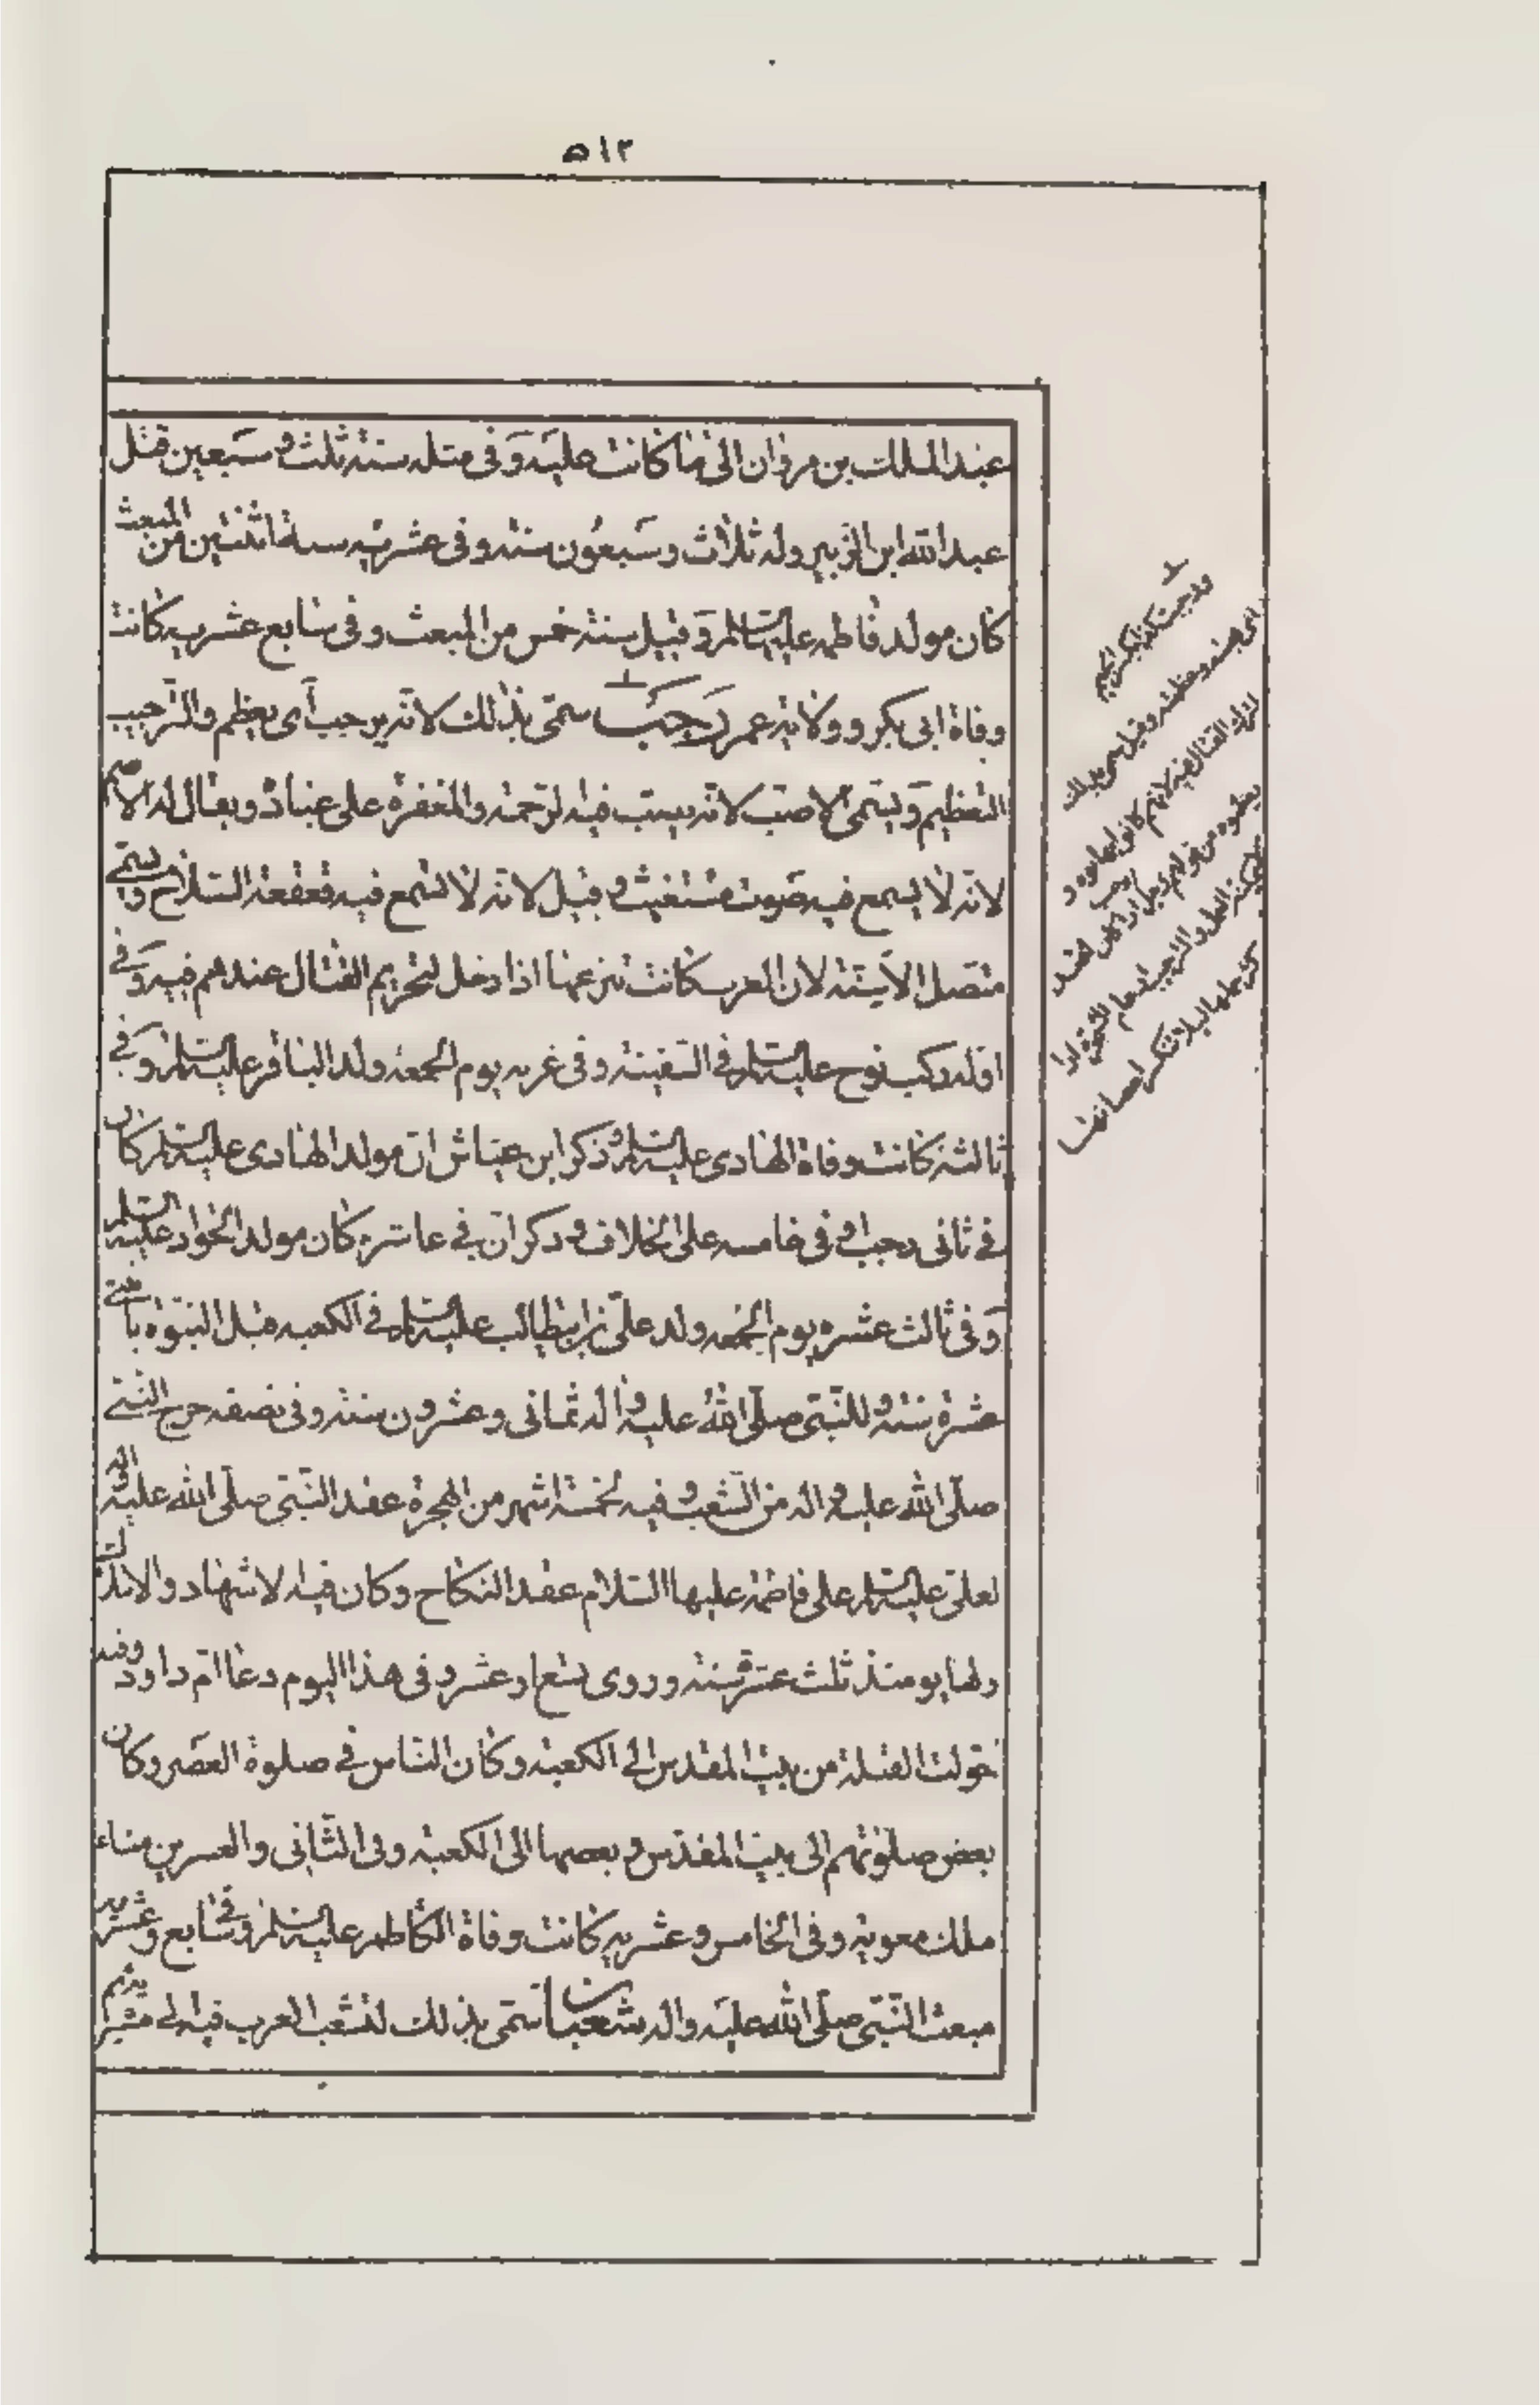 ٥١٢
عبد الملك بن مروان الى ما كانت عليه وفى مثله سنة ثلث وسبعين قتل
عبد الله ابن الزبير وله ثلاث وسبعون سنة وفى عشريه سنة اثنتين من المبعث
كان مولد فاطمه عليها السلم وقيل سنة خمس من المبعث وفى سابع عشريه كانت
وفاة ابى بكر وولاية عمر رجب سمّى بذلك لانّه يرجب أى يعظم والترجيب
التعظيم ويسمّى الاصبّ لانّه يصبّ فيه الرّحمة والمغفرة على عباده ويقال له الاصم
لانّه لا يسمع فيه صوت مستغيث وقيل لانّه لا تسمع فيه قعقعة السّلاح ويسمّى
منصل الاسنّة لان العرب كانت تنزعها اذا دخل لتحريم القتال عندهم فيه وفى
اوّله ركب نوح عليه السلم فى السّفينة وفى غرته يوم الجمعة ولد الباقر عليه السلم وفى
ثالثه كانت وفاة الهادى عليه السلم وذكر ابن عيّاش انّ مولد الهادى عليه السلم كان
فى ثانى رجب او فى خامسه على الخلاف وذكر انّ فى عاشره كان مولد الجواد عليه السلم
وفى ثالث عشره يوم الجمعه ولد علىّ بن ابيطالب عليه السلم فى الكعبه قبل النبوّه باثنتى
عشرة سنة وللنّبىّ صلّى الله عليه واله ثمانى وعشرون سنة وفى نصفه خرج النبىّ
صلّى الله عليه واله من الشّعب وفيه لخمسة اشهر من الهجرة عقد النّبىّ صلّى الله عليه واله
لعلىّ عليه السلم على فاطمة عليها السّلام عقد النكاح وكان فيه الاشهاد والاملاك
ولها يومئذ ثلث عشرة سنة وروى تسع او عشر وفى هذا اليوم دعا امّ داود وفيه
حوّلت القبلة من بيت المقدس الى الكعبة وكان النّاس فى صلوة العصر وكان
بعض صلوتهم الى بيت المقدّس وبعضها الى الكعبة وفى الثّانى والعشرين منه
ملك معوية وفى الخامس وعشريه كانت وفاة الكاظم عليه السلم وفى سابع وعشريه
مبعث النّبىّ صلّى الله عليه واله شعبان سمّى بذلك لتشعب العرب فيه الى
اى هبته وعظمته وقيل سمى بذلك
لترك القتال فيه لانهم كانوا